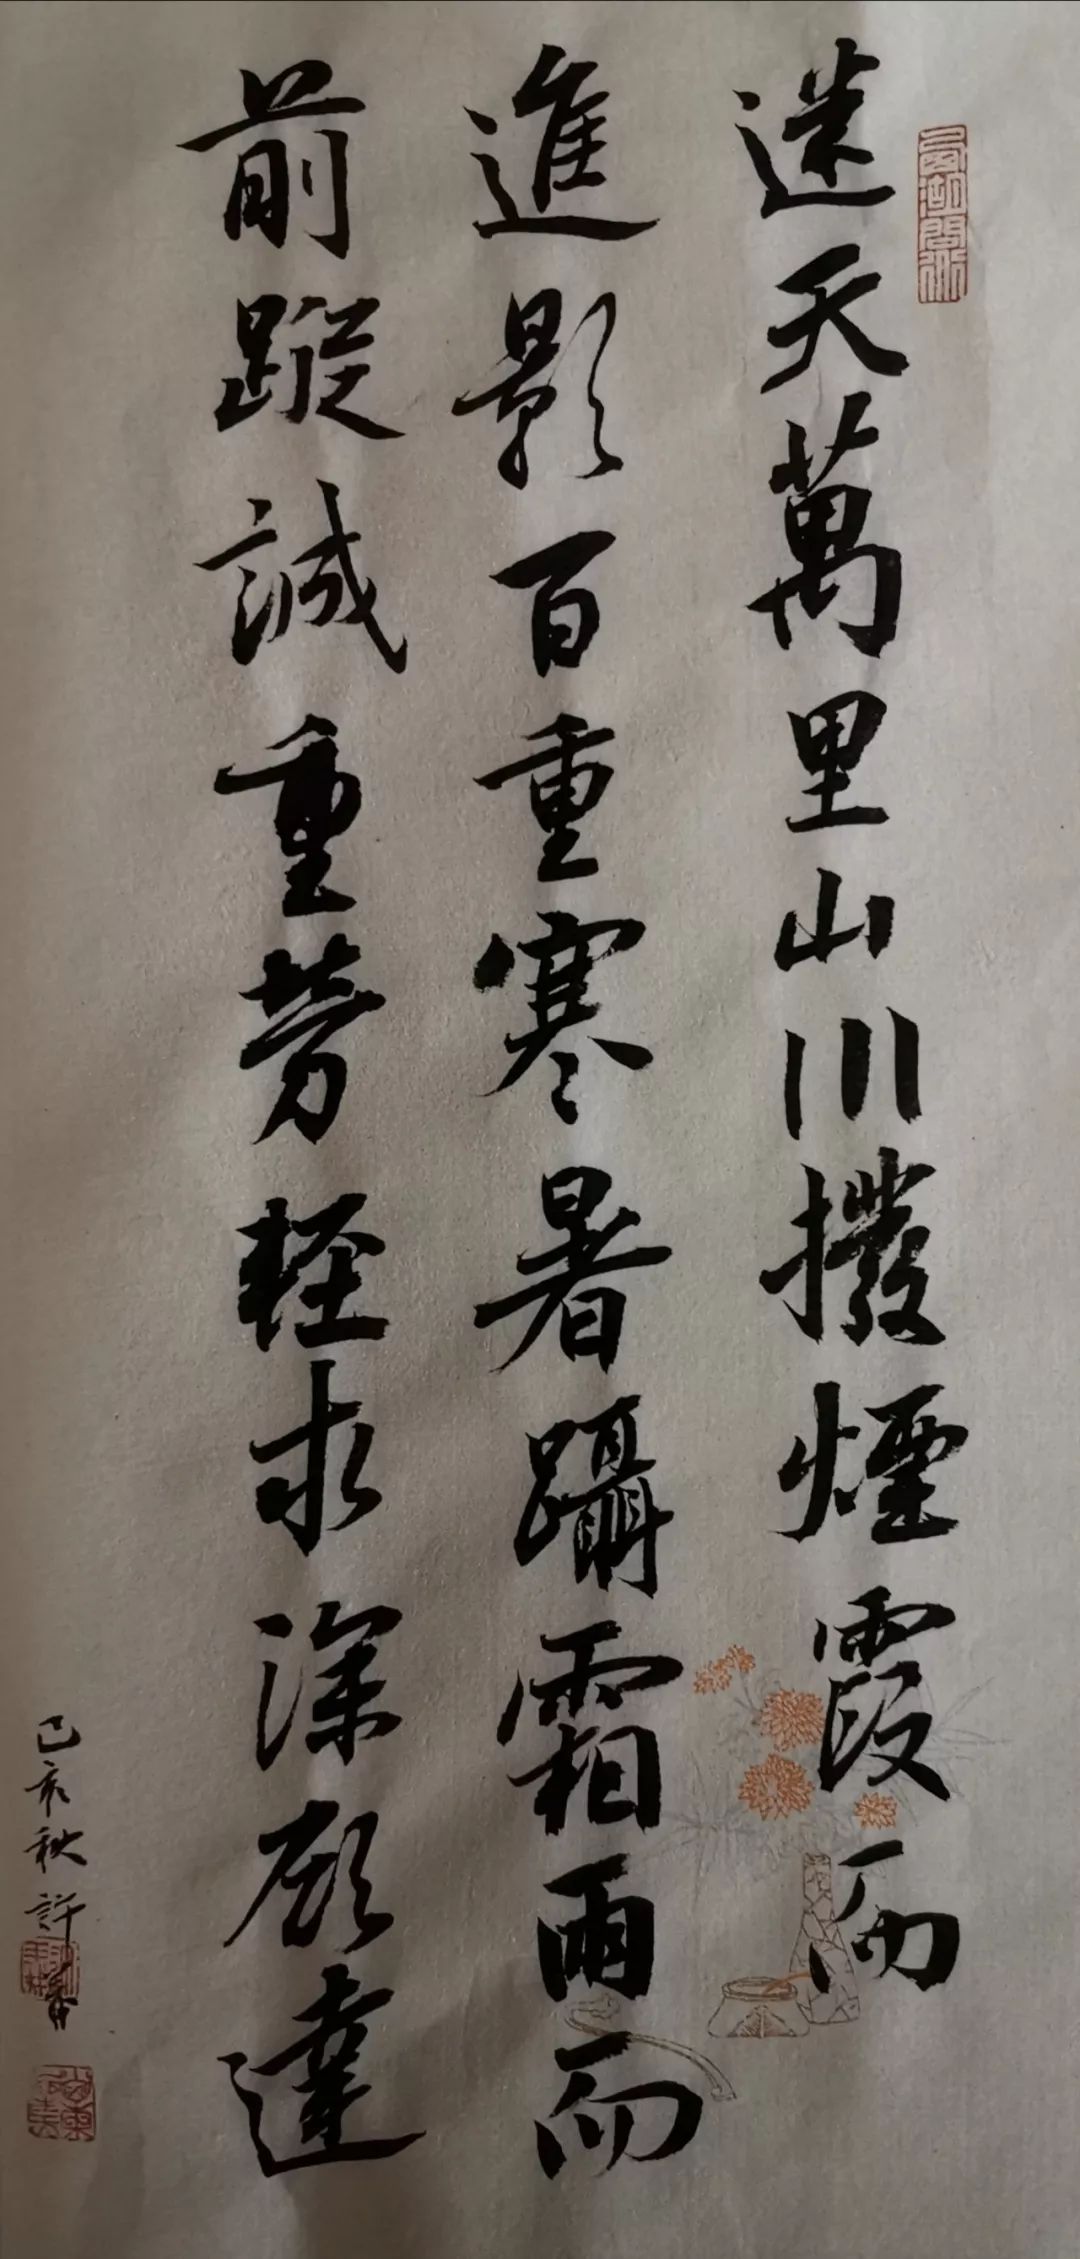 迷天萬里山川撥煙霞而
進影百重寒暑躡霜雨而
前蹤誠重勞輕求深願達
己亥秋許